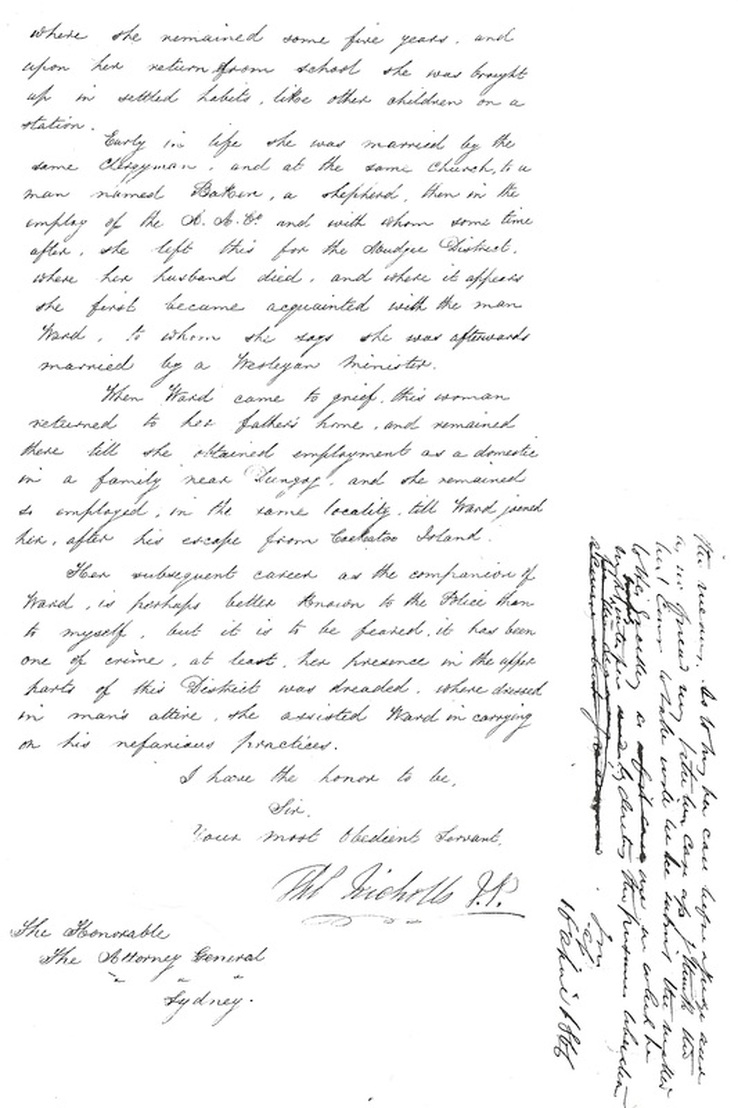 where she remained some five years, and
upon her return from school she was brought
up in settled habits, like other children on a
station.
Early in life she was married by the
same Clergyman, and at the same Church, to a
man named Baker, a shepherd, then in the
employ of the A. A. Co. and with whom some time
after, she left this for the Mudgee District,
where her husband died, and where it appears
she first became acquainted with the man
Ward, to whom she says she was afterwards
married by a Wesleyan Minister.
When Ward came to grief, this woman
returned to her father's home, and remained
there till she obtained employment as a domestic
in a family near Dungog, and she remained
so employed, in the same locality, till Ward joined
her, after his escape from Cockatoo Island.
Her subsequent career as the companion of
Ward, is perhaps better known to the Police than
to myself, but it is to be feared, it has been
one of crime, at least, her presence in the upper
parts of this District was dreaded, where dressed
in man's attire, she assisted Ward in carrying
on his nefarious practices.
I have the honor to be,
Sir,
Your most Obedient Servant,
Thos Nicholls J.P.
The Honorable
The Attorney General
" " "
Sydney.
the As to her case before
a in case of I think the
but the matter
to the as
by the prisoner
16 1866